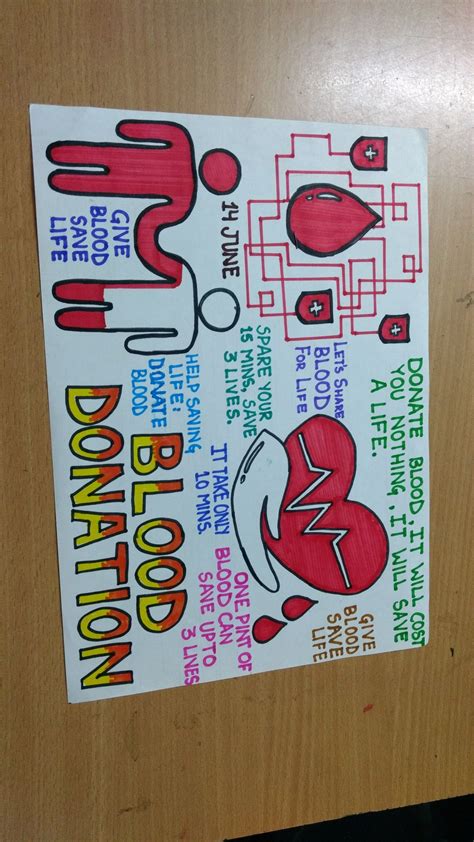 DONATE BLOOD, IT WILL COST
YOU NOTHING, IT WILL SAVE
A LIFE.
LET'S SHARE
BLOOD
FOR LIFE
GIVE
BLOOD
SAVE
LIFE
14 JUNE
SPARE YOUR
15 MINS, SAVE
3 LIVES.
IT TAKE ONLY
10 MINS.
ONE PINT OF
BLOOD CAN
SAVE UPTO
3 LIVES
GIVE
BLOOD
SAVE
LIFE
HELP SAVING
LIFE:
DONATE
BLOOD
BLOOD
DONATION